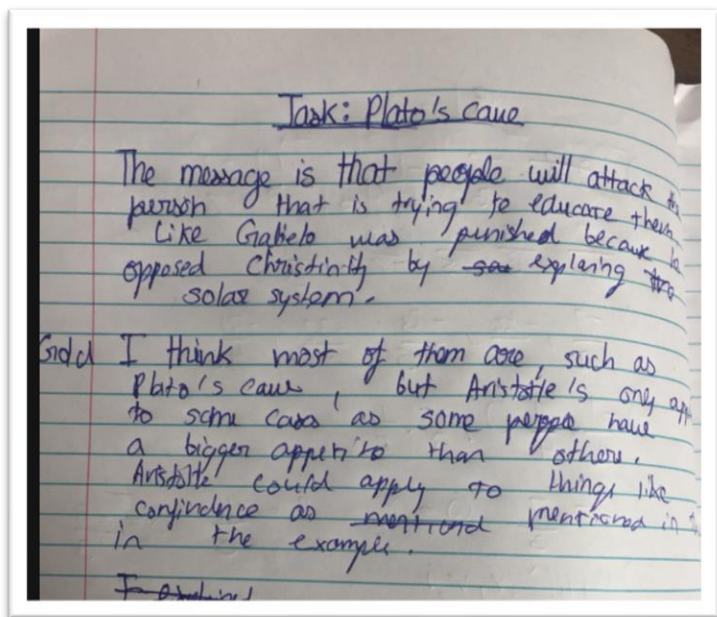 Task: Plato's cave
The message is that people will attack
person that is trying to educate them
Like Galielo was punished because
opposed Christinity by explaing
solar system.
I think most of them are, such as
Plato's cave, but Aristotle's only
to some cases as some people have
a bigger appetite than others.
Aristolte could apply to things like
confindnce as mentioned mentioned in
in the example.